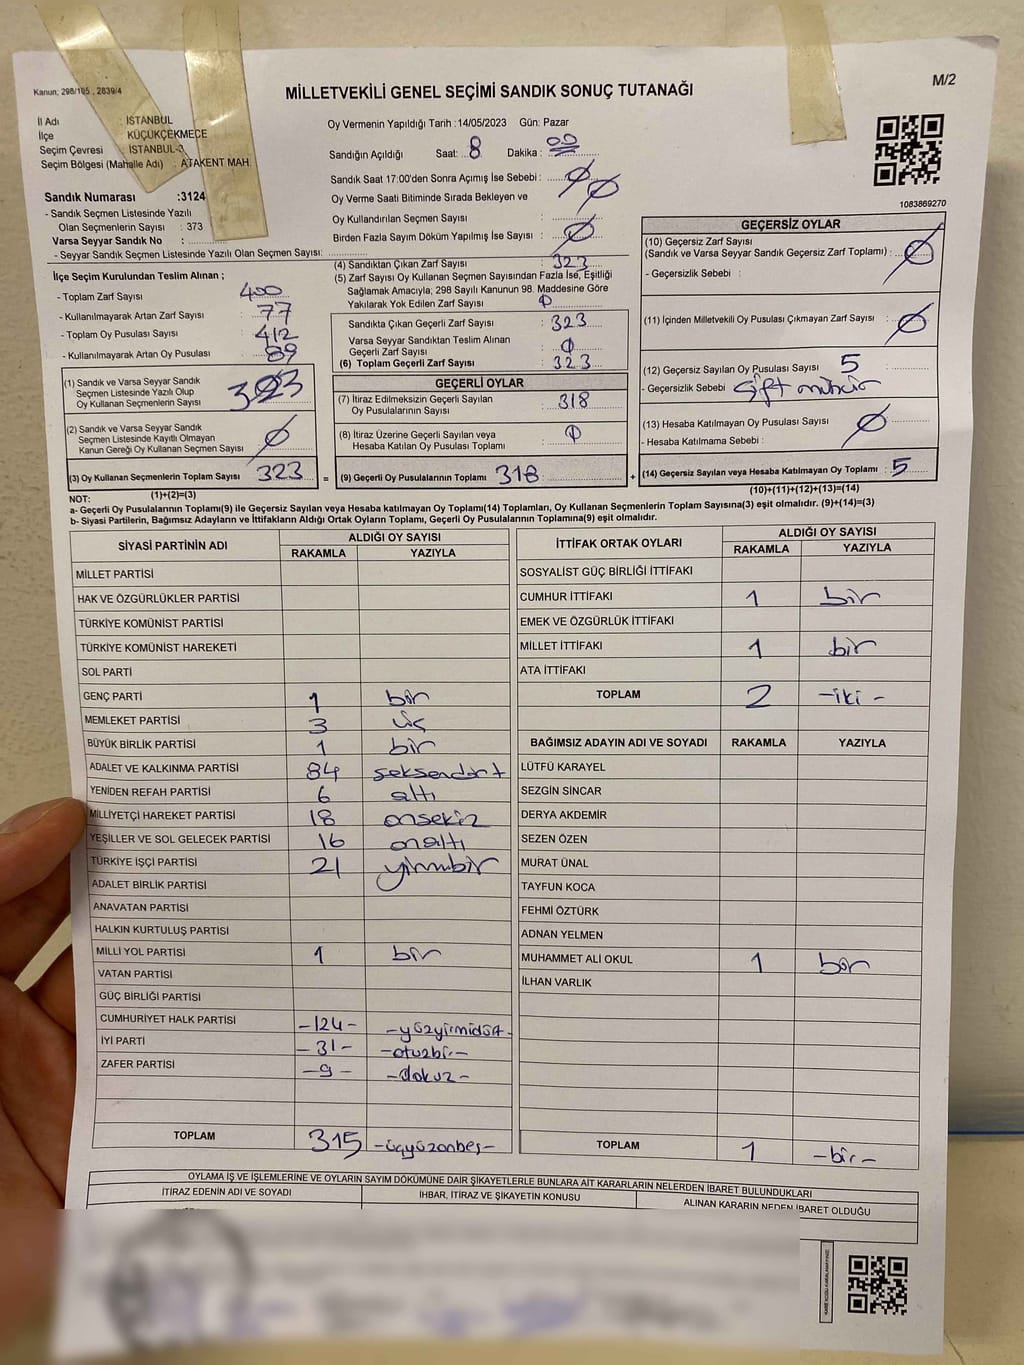 Kanun; 298/105 , 2839/4
MİLLETVEKİLİ GENEL SEÇİMİ SANDIK SONUÇ TUTANAĞI
M/2
İl Adı : İSTANBUL
İlçe : KÜÇÜKÇEKMECE
Seçim Çevresi : İSTANBUL-3
Seçim Bölgesi (Mahalle Adı) : ATAKENT MAH.
Oy Vermenin Yapıldığı Tarih :14/05/2023 Gün: Pazar
Sandığın Açıldığı Saat: 8 Dakika : 00
Sandık Saat 17:00'den Sonra Açımış İse Sebebi : Ø
Oy Verme Saati Bitiminde Sırada Bekleyen ve
Oy Kullandırılan Seçmen Sayısı : Ø
Birden Fazla Sayım Döküm Yapılmış İse Sayısı : Ø
1083869270
Sandık Numarası :3124
- Sandık Seçmen Listesinde Yazılı
Olan Seçmenlerin Sayısı : 373
Varsa Seyyar Sandık No :
- Seyyar Sandık Seçmen Listesinde Yazılı Olan Seçmen Sayısı:
İlçe Seçim Kurulundan Teslim Alınan ;
- Toplam Zarf Sayısı : 400
- Kullanılmayarak Artan Zarf Sayısı : 77
- Toplam Oy Pusulası Sayısı : 412
- Kullanılmayarak Artan Oy Pusulası : 89
(1) Sandık ve Varsa Seyyar Sandık
Seçmen Listesinde Yazılı Olup
Oy Kullanan Seçmenlerin Sayısı : 323
(2) Sandık ve Varsa Seyyar Sandık
Seçmen Listesinde Kayıtlı Olmayan
Kanun Gereği Oy Kullanan Seçmen Sayısı : Ø
(3) Oy Kullanan Seçmenlerin Toplam Sayısı : 323
(1)+(2)=(3)
(4) Sandıktan Çıkan Zarf Sayısı : 323
(5) Zarf Sayısı Oy Kullanan Seçmen Sayısından Fazla İse, Eşitliği
Sağlamak Amacıyla; 298 Sayılı Kanunun 98. Maddesine Göre
Yakılarak Yok Edilen Zarf Sayısı : Ø
Sandıkta Çıkan Geçerli Zarf Sayısı : 323
Varsa Seyyar Sandıktan Teslim Alınan
Geçerli Zarf Sayısı : Ø
(6) Toplam Geçerli Zarf Sayısı : 323
GEÇERLİ OYLAR
(7) İtiraz Edilmeksizin Geçerli Sayılan
Oy Pusulalarının Sayısı : 318
(8) İtiraz Üzerine Geçerli Sayılan veya
Hesaba Katılan Oy Pusulası Toplamı : Ø
= (9) Geçerli Oy Pusulalarının Toplamı : 318
GEÇERSİZ OYLAR
(10) Geçersiz Zarf Sayısı
(Sandık ve Varsa Seyyar Sandık Geçersiz Zarf Toplamı) : Ø
- Geçersizlik Sebebi :
(11) İçinden Milletvekili Oy Pusulası Çıkmayan Zarf Sayısı : Ø
(12) Geçersiz Sayılan Oy Pusulası Sayısı : 5
- Geçersizlik Sebebi : Çift mühür
(13) Hesaba Katılmayan Oy Pusulası Sayısı : Ø
- Hesaba Katılmama Sebebi :
+ (14) Geçersiz Sayılan veya Hesaba Katılmayan Oy Toplamı : 5
(10)+(11)+(12)+(13)=(14)
NOT:
a- Geçerli Oy Pusulalarının Toplamı(9) ile Geçersiz Sayılan veya Hesaba katılmayan Oy Toplamı(14) Toplamları, Oy Kullanan Seçmenlerin Toplam Sayısına(3) eşit olmalıdır. (9)+(14)=(3)
b- Siyasi Partilerin, Bağımsız Adayların ve İttifakların Aldığı Ortak Oyların Toplamı, Geçerli Oy Pusulalarının Toplamına(9) eşit olmalıdır.
SİYASİ PARTİNİN ADI ALDIĞI OY SAYISI
RAKAMLA YAZIYLA
MİLLET PARTİSİ
HAK VE ÖZGÜRLÜKLER PARTİSİ
TÜRKİYE KOMÜNİST PARTİSİ
TÜRKİYE KOMÜNİST HAREKETİ
SOL PARTİ
GENÇ PARTİ 1 bir
MEMLEKET PARTİSİ 3 üç
BÜYÜK BİRLİK PARTİSİ 1 bir
ADALET VE KALKINMA PARTİSİ 84 seksendört
YENİDEN REFAH PARTİSİ 6 altı
MİLLİYETÇİ HAREKET PARTİSİ 18 onsekiz
YEŞİLLER VE SOL GELECEK PARTİSİ 16 onaltı
TÜRKİYE İŞÇİ PARTİSİ 21 yirmibir
ADALET BİRLİK PARTİSİ
ANAVATAN PARTİSİ
HALKIN KURTULUŞ PARTİSİ
MİLLİ YOL PARTİSİ 1 bir
VATAN PARTİSİ
GÜÇ BİRLİĞİ PARTİSİ
CUMHURİYET HALK PARTİSİ -124- -yüzyirmidört-
İYİ PARTİ -31- -otuzbir-
ZAFER PARTİSİ -9- -dokuz-
TOPLAM 315 -üçyüzonbeş-
İTTİFAK ORTAK OYLARI ALDIĞI OY SAYISI
RAKAMLA YAZIYLA
SOSYALİST GÜÇ BİRLİĞİ İTTİFAKI
CUMHUR İTTİFAKI 1 bir
EMEK VE ÖZGÜRLÜK İTTİFAKI
MİLLET İTTİFAKI 1 bir
ATA İTTİFAKI
TOPLAM 2 -iki-
BAĞIMSIZ ADAYIN ADI VE SOYADI RAKAMLA YAZIYLA
LÜTFÜ KARAYEL
SEZGİN SİNCAR
DERYA AKDEMİR
SEZEN ÖZEN
MURAT ÜNAL
TAYFUN KOCA
FEHMİ ÖZTÜRK
ADNAN YELMEN
MUHAMMET ALİ OKUL 1 bir
İLHAN VARLIK
TOPLAM 1 -bir-
OYLAMA İŞ VE İŞLEMLERİNE VE OYLARIN SAYIM DÖKÜMÜNE DAİR ŞİKAYETLERLE BUNLARA AİT KARARLARIN NELERDEN İBARET BULUNDUKLARI
İTİRAZ EDENİN ADI VE SOYADI İHBAR, İTİRAZ VE ŞİKAYETİN KONUSU ALINAN KARARIN NEDEN İBARET OLDUĞU